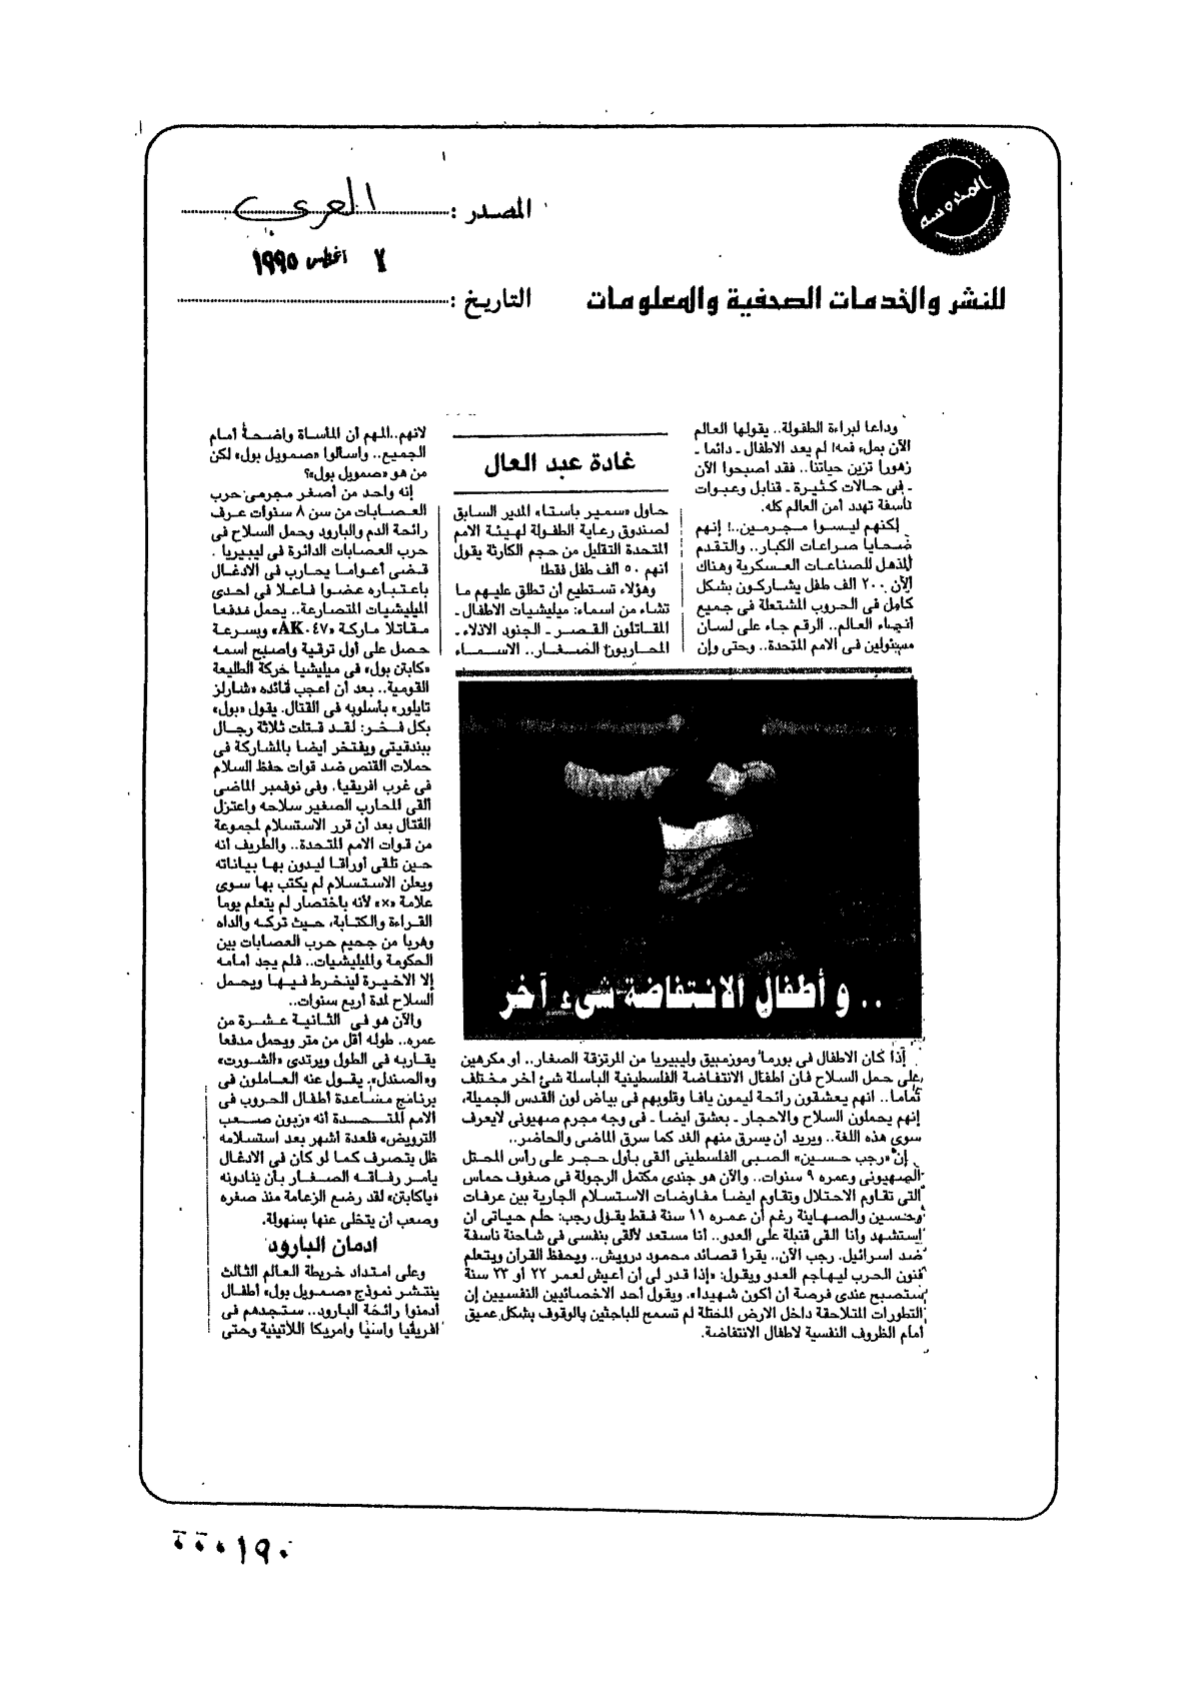 المحروسة
المصدر :
العربي
٧ أغسطس ١٩٩٥
للنشر والخدمات الصحفية والمعلومات
التاريخ :
وداعا لبراءة الطفولة.. يقولها العالم
الآن بملء فمه! لم يعد الاطفال ـ دائما ـ
زهورا تزين حياتنا.. فقد أصبحوا الآن
ـ فى حالات كثيرة ـ قنابل وعبوات
ناسفة تهدد أمن العالم كله.
لكنهم ليسوا مجرمين..! إنهم
ضحايا صراعات الكبار.. والتقدم
المذهل للصناعات العسكرية وهناك
الآن ٢٠٠ الف طفل يشاركون بشكل
كامل فى الحروب المشتعلة فى جميع
أنحاء العالم.. الرقم جاء على لسان
مسئولين فى الامم المتحدة.. وحتى وإن
غادة عبد العال
حاول «سمير باستا» المدير السابق
لصندوق رعاية الطفولة لهيئة الامم
المتحدة التقليل من حجم الكارثة يقول
انهم ٥٠ الف طفل فقط!
وهؤلاء تستطيع ان تطلق عليهم ما
تشاء من اسماء: ميليشيات الاطفال ـ
المقاتلون القصر ـ الجنود الاذلاء ـ
المحاربون الصغار.. الاسماء
لانهم..المهم أن المأساة واضحة أمام
الجميع.. واسالوا «صمويل بول» لكن
من هو «صمويل بول»؟
إنه واحد من أصغر مجرمى حرب
العصابات من سن ٨ سنوات عرف
رائحة الدم والبارود وحمل السلاح فى
حرب العصابات الدائرة فى ليبيريا .
قضى أعواما يحارب فى الادغال
باعتباره عضوا فاعلا فى احدى
الميليشيات المتصارعة.. يحمل مدفعا
مقاتلا ماركة «AK.٤٧» وبسرعة
حصل على أول ترقية واصبح اسمه
«كابتن بول» فى ميليشيا حركة الطليعة
القومية.. بعد أن اعجب قائده «شارلز
تايلور» بأسلوبه فى القتال. يقول «بول»
بكل فخر: لقد قتلت ثلاثة رجال
ببندقيتى ويفتخر ايضا بالمشاركة فى
حملات القنص ضد قوات حفظ السلام
فى غرب افريقيا. وفى نوفمبر الماضى
القى المحارب الصغير سلاحه واعتزل
القتال بعد أن قرر الاستسلام لمجموعة
من قوات الامم المتحدة.. والطريف انه
حين تلقى أوراقا ليدون بها بياناته
ويعلن الاستسلام لم يكتب بها سوى
علامة «×» لأنه باختصار لم يتعلم يوما
القراءة والكتابة، حيث تركه والداه
وهربا من جحيم حرب العصابات بين
الحكومة والميليشيات.. فلم يجد أمامه
إلا الاخيرة لينخرط فيها ويحمل
السلاح لمدة أربع سنوات..
والآن هو فى الثانية عشرة من
عمره.. طوله أقل من متر ويحمل مدفعا
يقاربه فى الطول ويرتدى «الشورت»
و«الصندل». يقول عنه العاملون فى
برنامج مساعدة أطفال الحروب فى
الامم المتحدة أنه «زبون صعب
الترويض» فلعدة اشهر بعد استسلامه
ظل يتصرف كما لو كان فى الادغال
يأمر رفاقه الصغار بأن ينادونه
«ياكابتن» لقد رضع الزعامة منذ صغره
وصعب أن يتخلى عنها بسهولة.
ادمان البارود
وعلى امتداد خريطة العالم الثالث
ينتشر نموذج «صمويل بول» أطفال
أدمنوا رائحة البارود.. ستجدهم فى
افريقيا واسيا وامريكا اللاتينية وحتى
.. و أطفال الانتفاضة شىء آخر
إذا كان الاطفال فى بورما وموزمبيق وليبيريا من المرتزقة الصغار.. او مكرهين
على حمل السلاح فان اطفال الانتفاضة الفلسطينية الباسلة شئ اخر مختلف
تماما.. انهم يعشقون رائحة ليمون يافا وقلوبهم فى بياض لون القدس الجميلة،
إنهم يحملون السلاح والاحجار ـ بعشق ايضا ـ فى وجه مجرم صهيونى لايعرف
سوى هذه اللغة.. ويريد ان يسرق منهم الغد كما سرق الماضى والحاضر..
إن «رجب حسين» الصبى الفلسطينى القى بأول حجر على رأس المحتل
الصهيونى وعمره ٩ سنوات.. والآن هو جندى مكتمل الرجولة فى صفوف حماس
التى تقاوم الاحتلال وتقاوم ايضا مفاوضات الاستسلام الجارية بين عرفات
وحسين والصهاينة رغم أن عمره ١١ سنة فقط يقول رجب: حلم حياتى ان
استشهد وانا القى قنبلة على العدو.. أنا مستعد لألقى بنفسى فى شاحنة ناسفة
ضد اسرائيل. رجب الآن.. يقرأ قصائد محمود درويش.. ويحفظ القرآن ويتعلم
فنون الحرب ليهاجم العدو ويقول: «إذا قدر لى أن أعيش لعمر ٢٢ أو ٢٣ سنة
ستصبح عندى فرصة أن اكون شهيدا». ويقول أحد الاخصائيين النفسيين إن
التطورات المتلاحقة داخل الارض المحتلة لم تسمح للباحثين بالوقوف بشكل عميق
أمام الظروف النفسية لاطفال الانتفاضة.